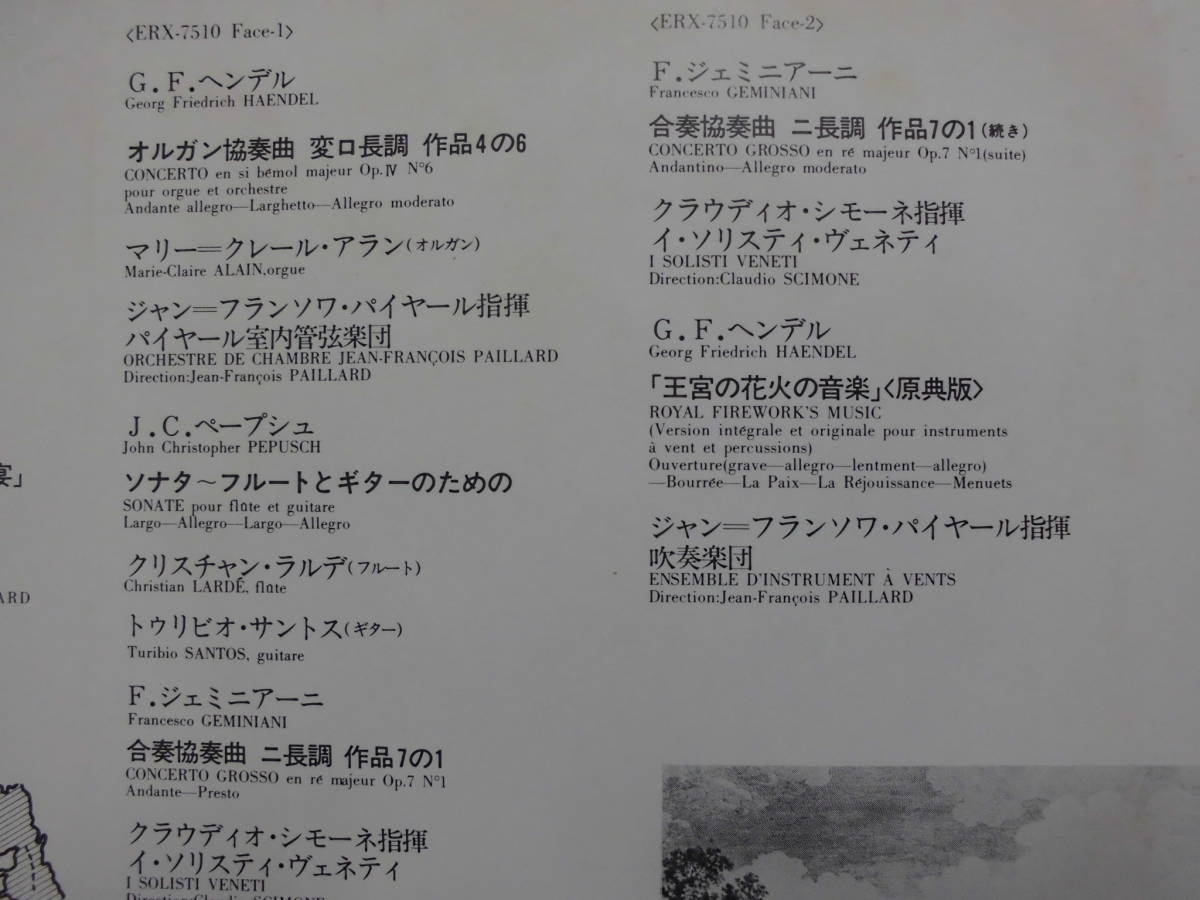 〈ERX-7510 Face-1〉
G.F.ヘンデル
Georg Friedrich HAENDEL
オルガン協奏曲 変ロ長調 作品4の6
CONCERTO en si bémol majeur Op.Ⅳ N°6
pour orgue et orchestre
Andante allegro—Larghetto—Allegro moderato
マリー＝クレール・アラン(オルガン)
Marie-Claire ALAIN,orgue
ジャン＝フランソワ・パイヤール指揮
パイヤール室内管弦楽団
ORCHESTRE DE CHAMBRE JEAN-FRANÇOIS PAILLARD
Direction:Jean-François PAILLARD
J.C.ペープシュ
John Christopher PEPUSCH
ソナタ～フルートとギターのための
SONATE pour flûte et guitare
Largo—Allegro—Largo—Allegro
クリスチャン・ラルデ(フルート)
Christian LARDÉ, flûte
トゥリビオ・サントス(ギター)
Turibio SANTOS, guitare
F.ジェミニアーニ
Francesco GEMINIANI
合奏協奏曲 ニ長調 作品7の1
CONCERTO GROSSO en ré majeur Op.7 N°1
Andante—Presto
クラウディオ・シモーネ指揮
イ・ソリスティ・ヴェネティ
I SOLISTI VENETI
Direction:Claudio SCIMONE
〈ERX-7510 Face-2〉
F.ジェミニアーニ
Francesco GEMINIANI
合奏協奏曲 ニ長調 作品7の1(続き)
CONCERTO GROSSO en ré majeur Op.7 N°1(suite)
Andantino—Allegro moderato
クラウディオ・シモーネ指揮
イ・ソリスティ・ヴェネティ
I SOLISTI VENETI
Direction:Claudio SCIMONE
G.F.ヘンデル
Georg Friedrich HAENDEL
「王宮の花火の音楽」〈原典版〉
ROYAL FIREWORK'S MUSIC
(Version intégrale et originale pour instruments
à vent et percussions)
Ouverture(grave—allegro—lentment—allegro)
—Bourrée—La Paix—La Réjouissance—Menuets
ジャン＝フランソワ・パイヤール指揮
吹奏楽団
ENSEMBLE D'INSTRUMENT À VENTS
Direction:Jean-François PAILLARD
宴」
ARD